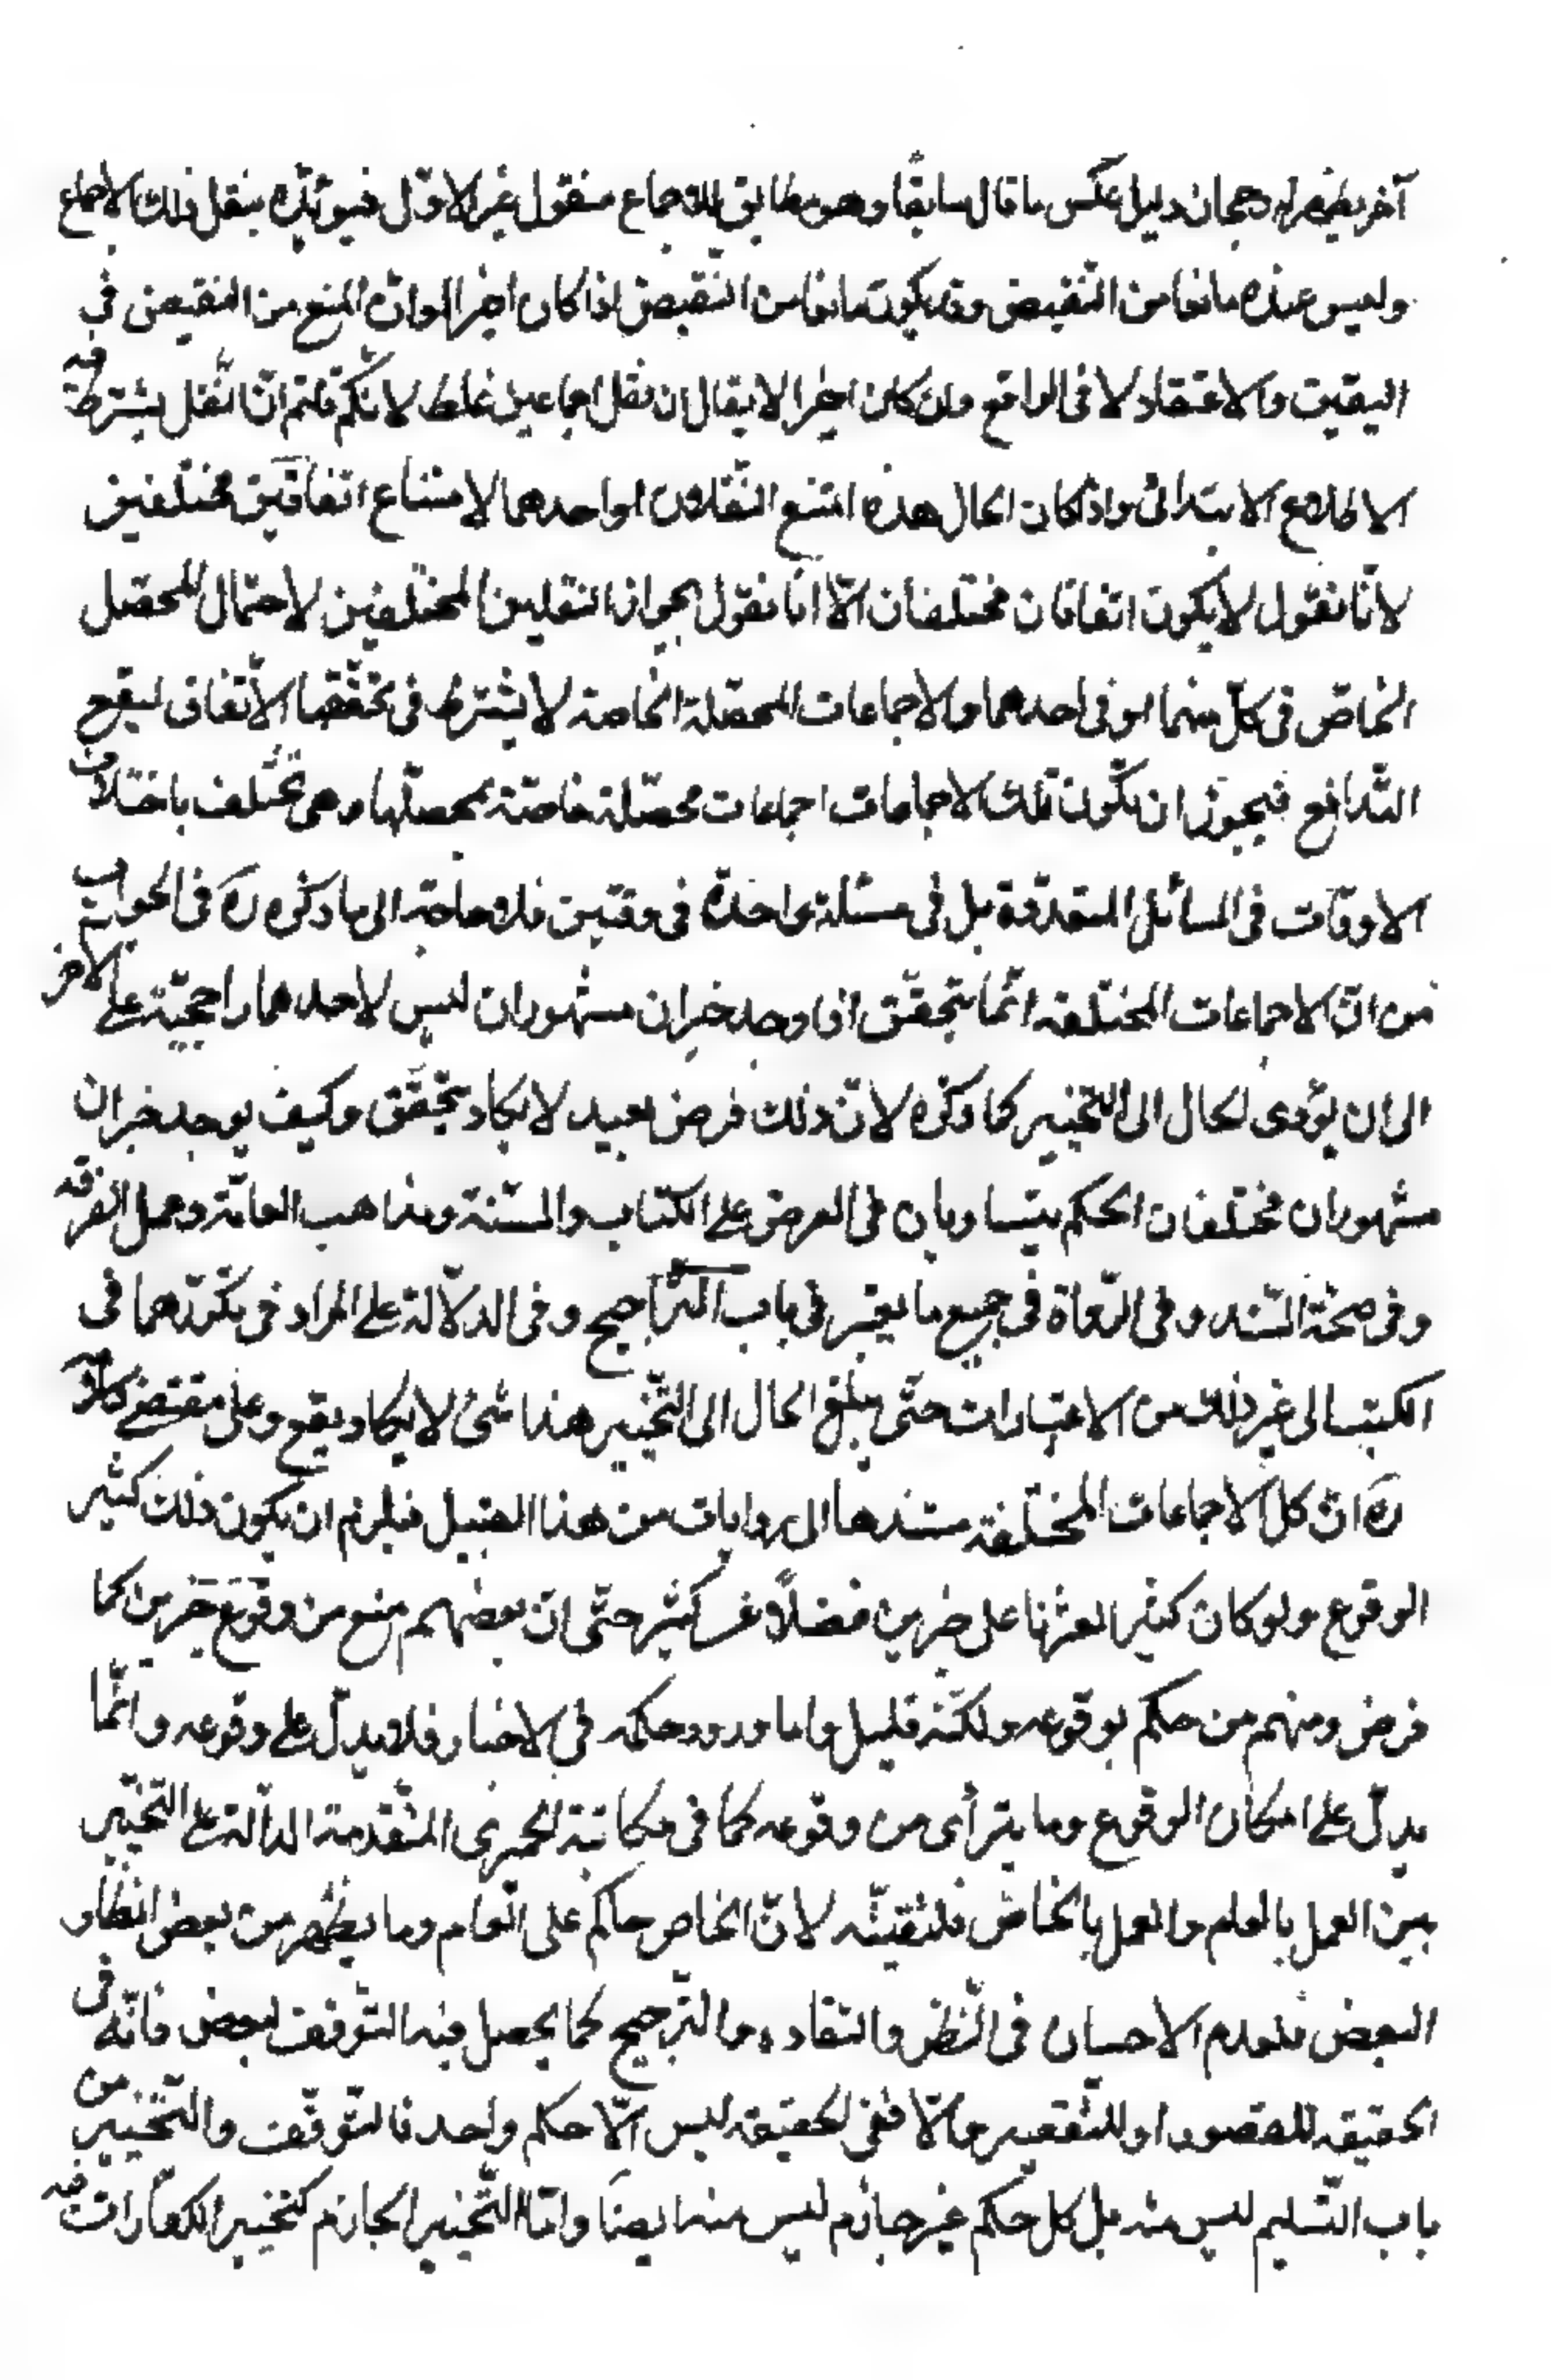 آخر يظهر له رجحان دليل عكس ما قال سابقًا وهو مطابق للاجماع منقول غير الاوّل فيؤيّده بنقل ذلك الاجماع
وليس عنده مانعا من النّقيض وقد يكون مانعا من النّقيض اذا كان اخيرا لو انّ المنع من النقيض فى
اليقين والاعتقاد لا فى الواقع وان كان اخيرا لا يقال ان نقل اجماعين غلط لانّكم قلتم انّ النّقل يشترط فيه
الاطلاع الابتدائى واذا كان الحال هذه امتنع النّقلان او احدهما لامتناع اتفاقين مختلفين
لانّا نقول لا يكون اتفاقان مختلفان الّا انّا نقول بجواز النقلين المختلفين لاحتمال المحصّل
الخاصّ فى كلّ منهما او فى احدهما والاجماعات المحصّلة الخاصة لا يشترط فى تحقّقها الاتّفاق ليقع
التّدافع فيجوز ان تكون تلك الاجماعات اجماعات محصّلة خاصّة بمحصلّها وهى تختلف باختلاف
الاوقات فى المسائل المتعدّدة بل فى مسئلة واحدة فى وقتين فلا حاجة الى ما ذكره ره فى الجواب
من انّ الاجماعات المختلفة انّما يتحقّق اذا وجد خبران مشهوران ليس لاحدهما راجحيّة على الاخر
الى ان يؤدى الحال الى التّخيير كما ذكره لانّ ذلك فرض بعيد لا يكاد يتحقّق وكيف يوجد خبران
مشهوران مختلفان الحكم يتساويان فى العرض على الكتاب والسّنة ومذاهب العامّة وعمل الفرقه
وفى صحّة السّند وفى الرّواة فى جميع ما يعتبر فى باب التّراجيح وفى الدلالة على المراد فى تكرّرهما فى
الكتب الى غير ذلك من الاعتبارات حتّى يبلغ الحال الى التّخيير هذا شئ لا يكاد يقع وعلى مقتضى كلامه
ره انّ كلّ الاجماعات المختلفة مستندها الى روايات من هذا القبيل فيلزم ان يكون ذلك كثير
الوقوع ولو كان كثيرا لعثرنا على خبرين فضلاً عن كثير حتّى انّ بعضهم منع من وقوع خبرين كما
فرض ومنهم من حكم بوقوعه ولكنّه قليل واما ورود حكمه فى الاخبار فلا يدلّ على وقوعه وانّما
يدلّ على امكان الوقوع وما يترأى من وقوعه كما فى مكاتبة الحميرى المتقدمة الدالّة على التّخيير
بين العمل بالعام والعمل بالخاصّ فلتقيّة لانّ الخاص حاكم على العام وما يظهر من بعض انظار
البعض فلعدم الاحسان فى النّظر والتقاده والتّرجيح كما يحصل فيه التّوقّف لبعض فانّه فى
الحقيقه للقصور او للتّقصير والّا ففى الحقيقه ليس الّا حكم واحد فالتّوقّف والتّخيير من
باب التّسليم ليس منه بل كل حكم غير جازم ليس منه ايضا وامّا التّخيير الجازم كتخيير الكفّارات فمنه